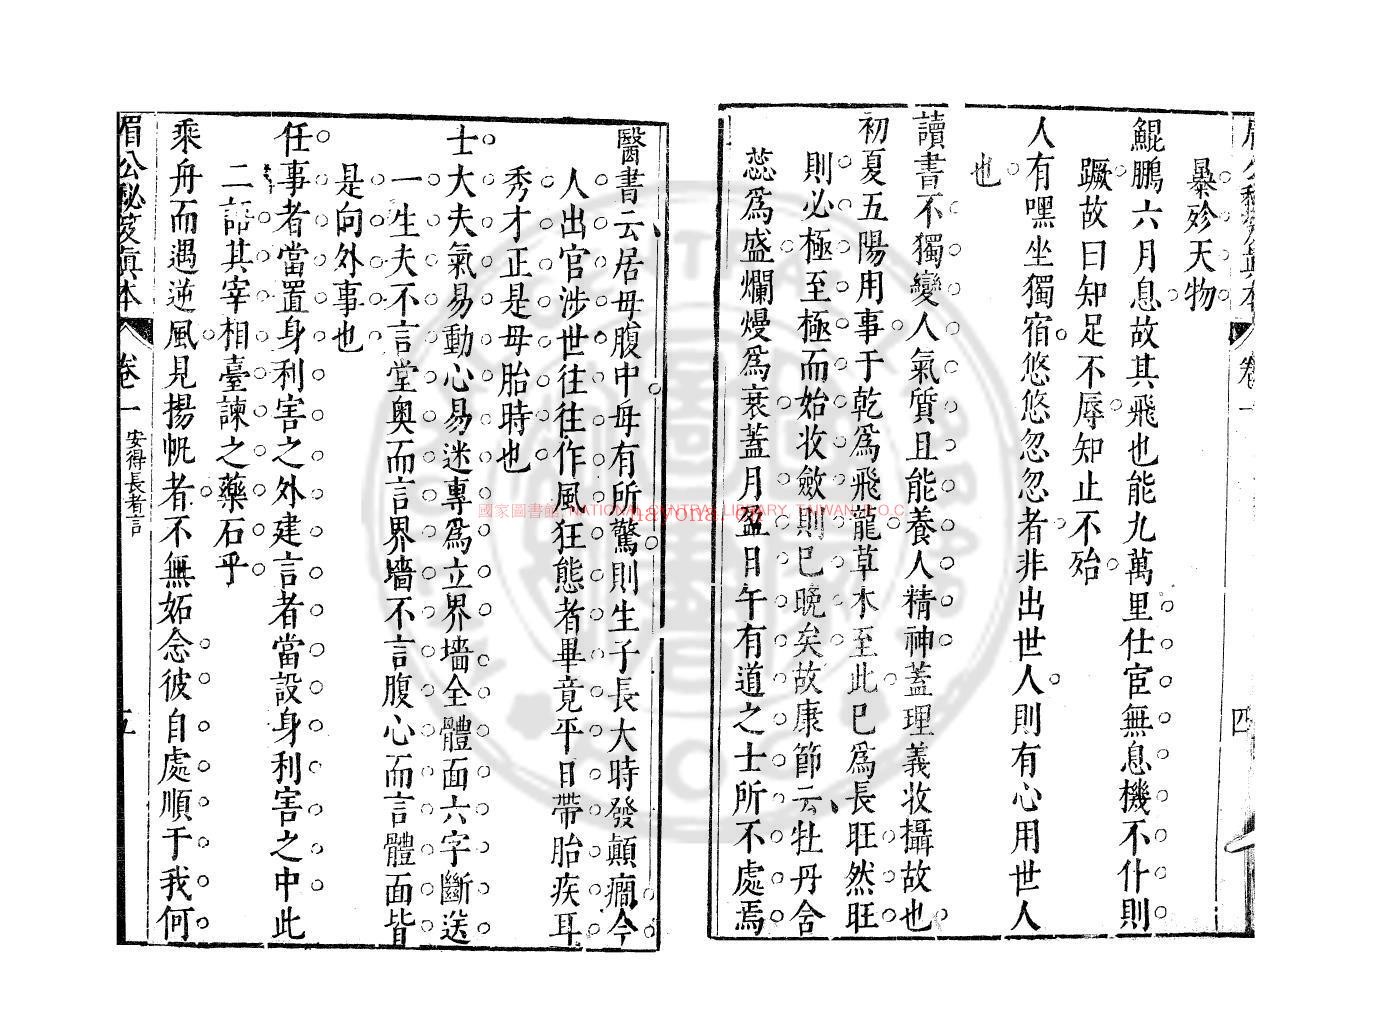 暴殄天物
鯤鵬六月息故其飛也能九萬里仕宦無息機不仆則
蹶故曰知足不辱知止不殆
人有嘿坐獨宿悠悠忽忽者非出世人則有心用世人
也
讀書不獨變人氣質且能養人精神蓋理義收攝故也
初夏五陽用事于乾爲飛龍草木至此已爲長旺然旺
則必極至極而始收斂則已晚矣故康節云牡丹含
蕊爲盛爛熳爲衰蓋月盈日午有道之士所不處焉
卷一
四
醫書云居母腹中母有所驚則生子長大時發顛癇今
人出官涉世往往作風狂態者畢竟平日帶胎疾耳
秀才正是母胎時也
士大夫氣易動心易迷專爲立界墻全體面六字斷送
一生夫不言堂奧而言界墻不言腹心而言體面皆
是向外事也
任事者當置身利害之外建言者當設身利害之中此
二語其宰相臺諫之藥石乎
乘舟而遇逆風見揚帆者不無妬念彼自處順于我何
眉公秘笈真本 卷一 安得長者言 五
國家圖書館 NATIONAL CENTRAL LIBRARY, TAIWAN, R.O.C